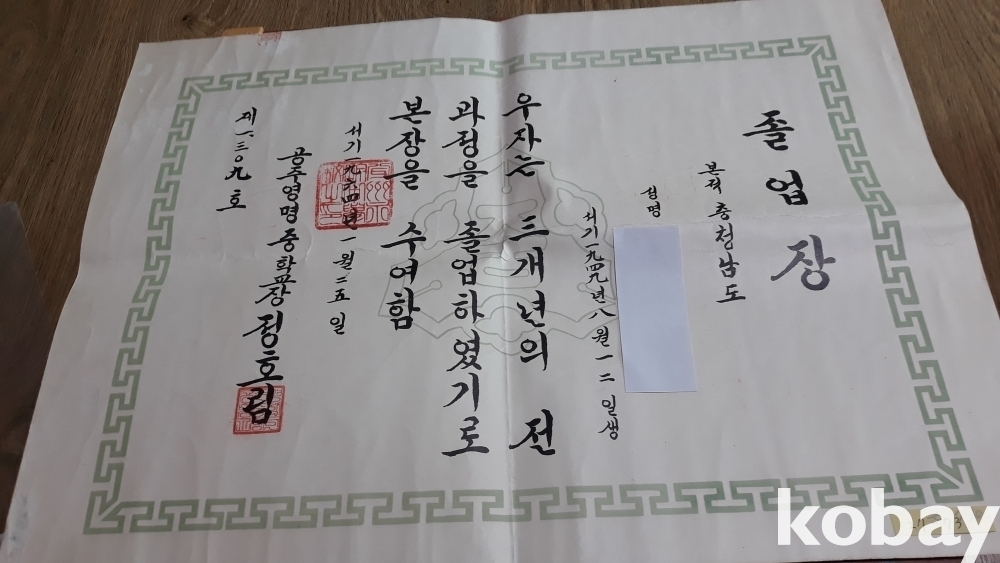 졸업장
본적 충청남도
성명
서기一九四九년八월一二일생
우자는 三개년의 전
과정을 졸업하였기로
본장을 수여함
서기一九六四년一월二五일
공주영명중학교장 정호림
제一.三○九호
kobay